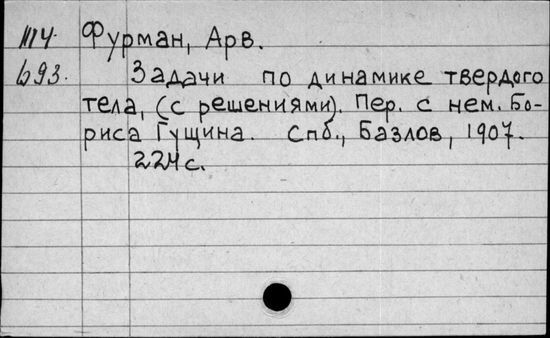 Ш4. Фурман, Арв.
693. Задачи по динамике твердого
тела, (с решениями). Пер. с нем. Бо-
риса Гущина. Спб., Базлов, 1907.
224 с.